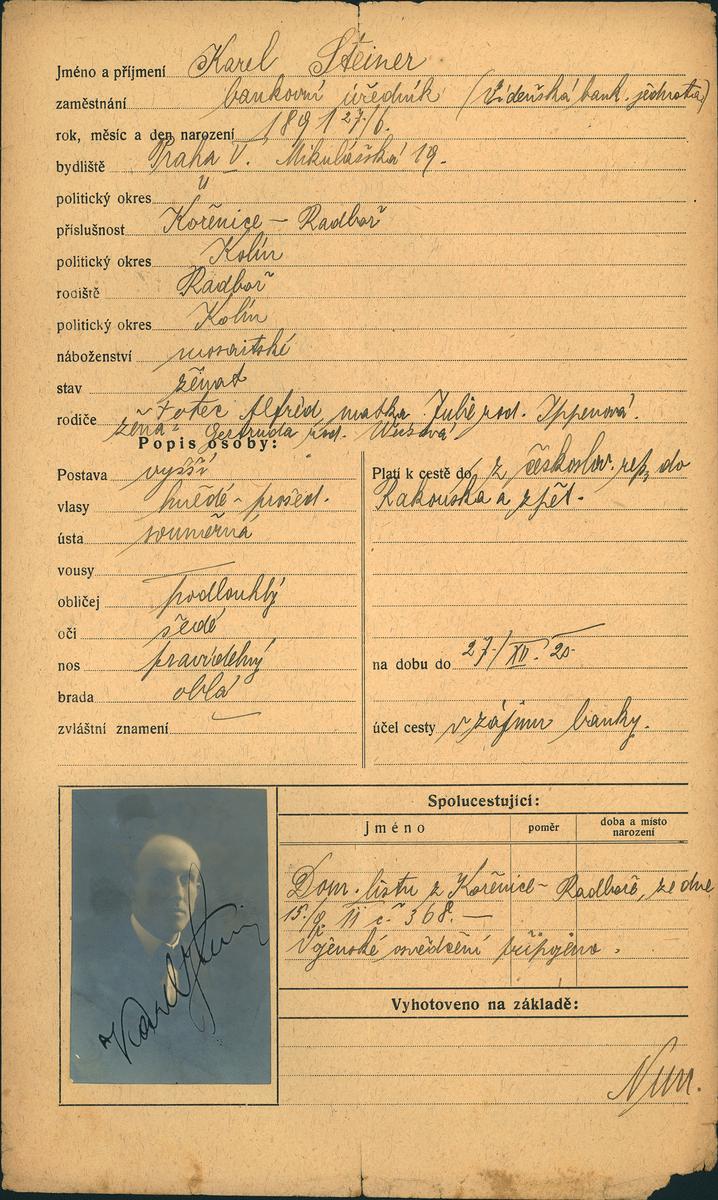 Jméno a příjmení Karel Steiner
zaměstnání bankovní úředník (Vídeňská bank. jednota)
rok, měsíc a den narození 1891 27/6.
bydliště Praha V. Mikulášská 19.
politický okres "
příslušnost Kořenice - Radboř
politický okres Kolín
rodiště Radboř
politický okres Kolín
náboženství mosaitské
stav ženat
rodiče otec Alfréd, matka Julie rod. Ippenová.
žena: Gertruda rod.
Popis osoby:
Postava vyšší
vlasy hnědé - prošed.
ústa souměrná
vousy —
obličej podlouhlý
oči šedé
nos pravidelný
brada oblá
zvláštní znamení
Platí k cestě do z českoslov. rep. do
Rakouska a zpět.
na dobu do 27/XII. 20
účel cesty v zájmu banky.
Spolucestující:
Jméno poměr doba a místo narození
Dom. listu z Kořenice - Radboře, ze dne
15/9 11 č. 368. —
Vojenské osvědčení připojeno.
Vyhotoveno na základě:
Karel Steiner